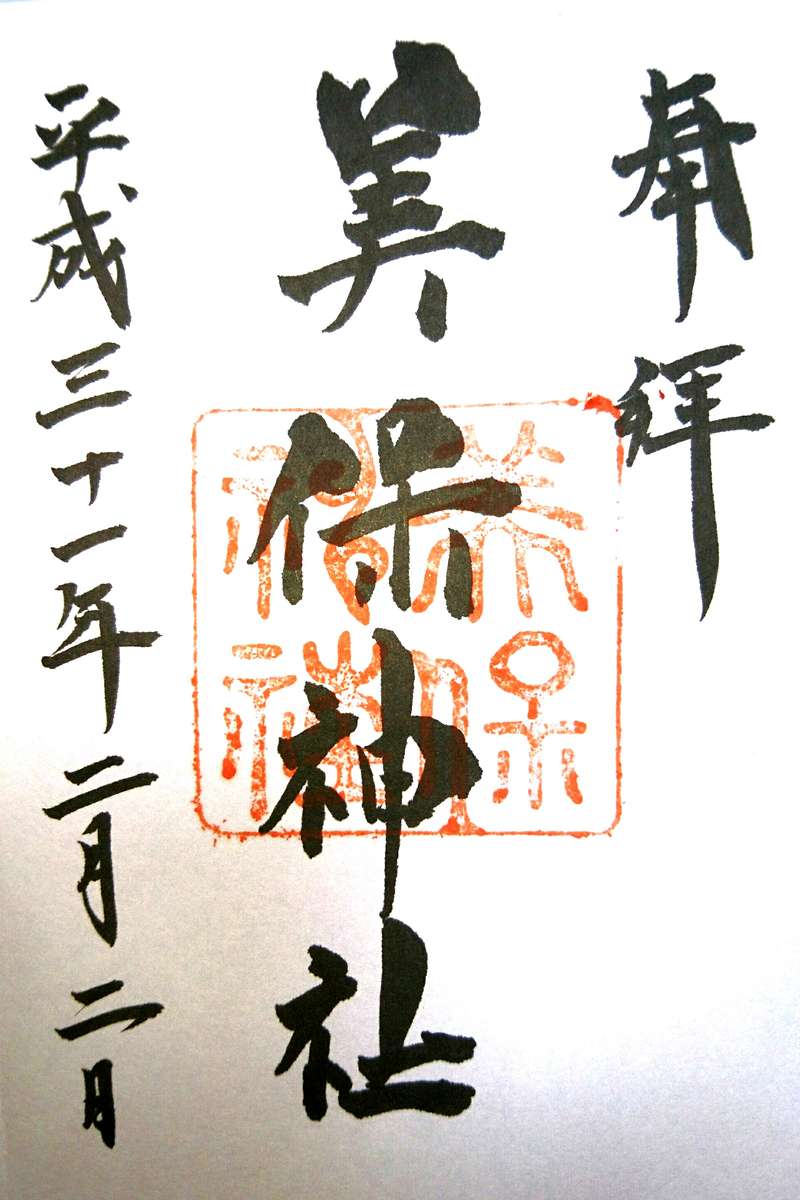 奉拝
美保神社
平成三十一年二月二日